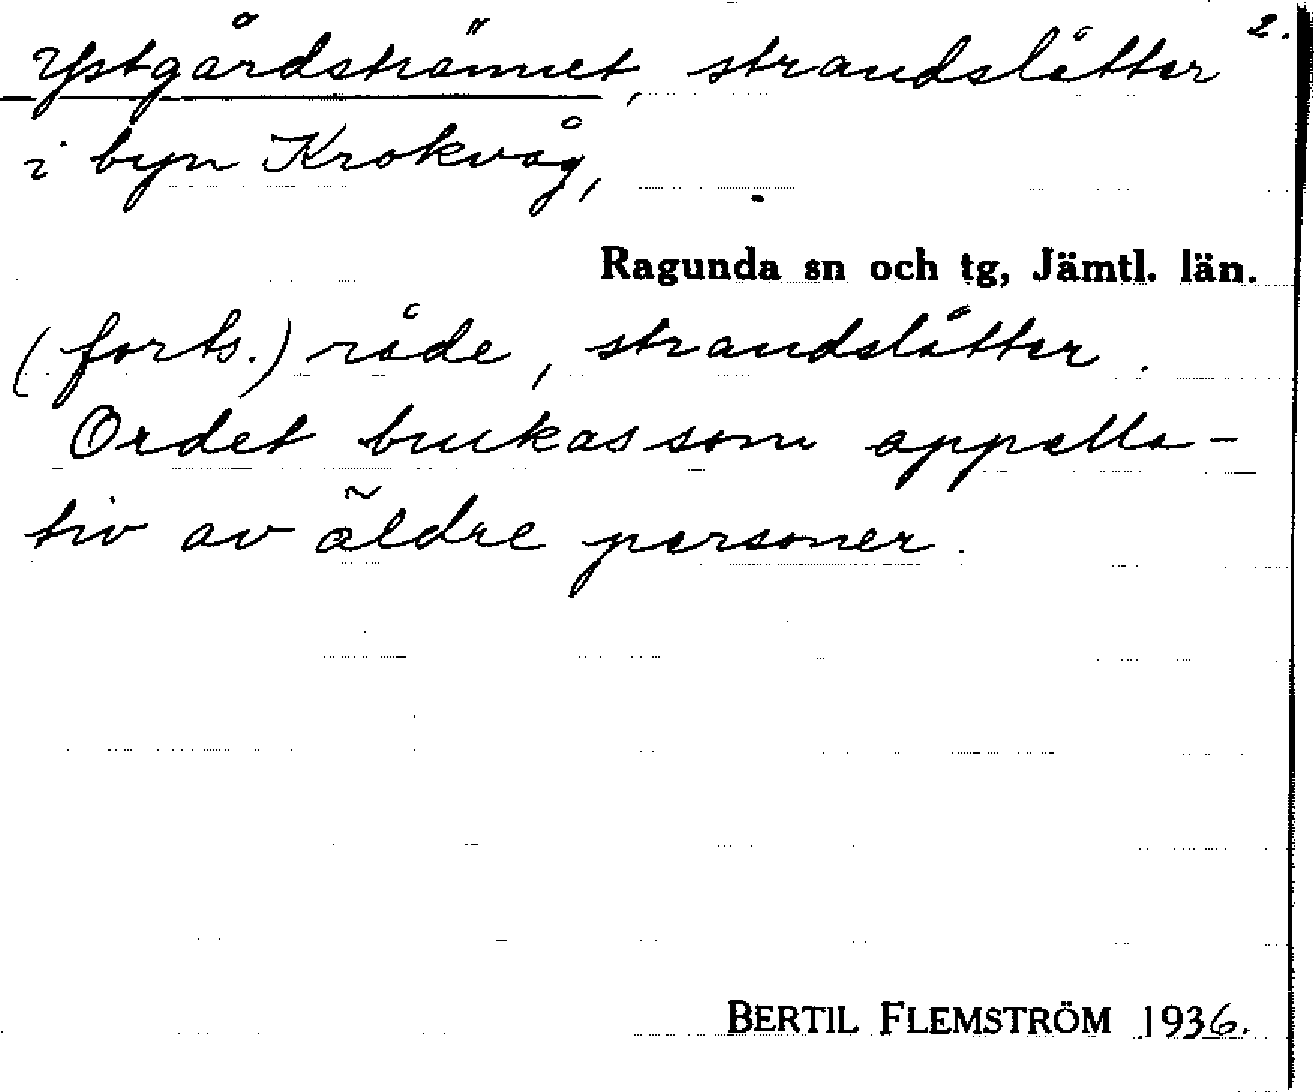 Ystgårdsträmnet, strandslåtter 2.
i byn Krokvåg,
Ragunda sn och tg, Jämtl. län.
(forts.) råde, strandslåtter.
Ordet brukas som appella-
tiv av äldre personer.
BERTIL FLEMSTRÖM 1936.